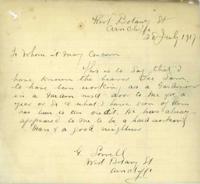 West Botany St
Arncliffe
28 July 1917
To Whom it May Concern
This is to Say that I
have known the bearer Gee Sam
to have been working as a Gardener
in a Garden next door to me for
years or so & what I have seen of him
can be a credit. He has always
appeared to me to be a hard working
Man & a good neighbour
G Sorrell
West Botany St
Arncliffe